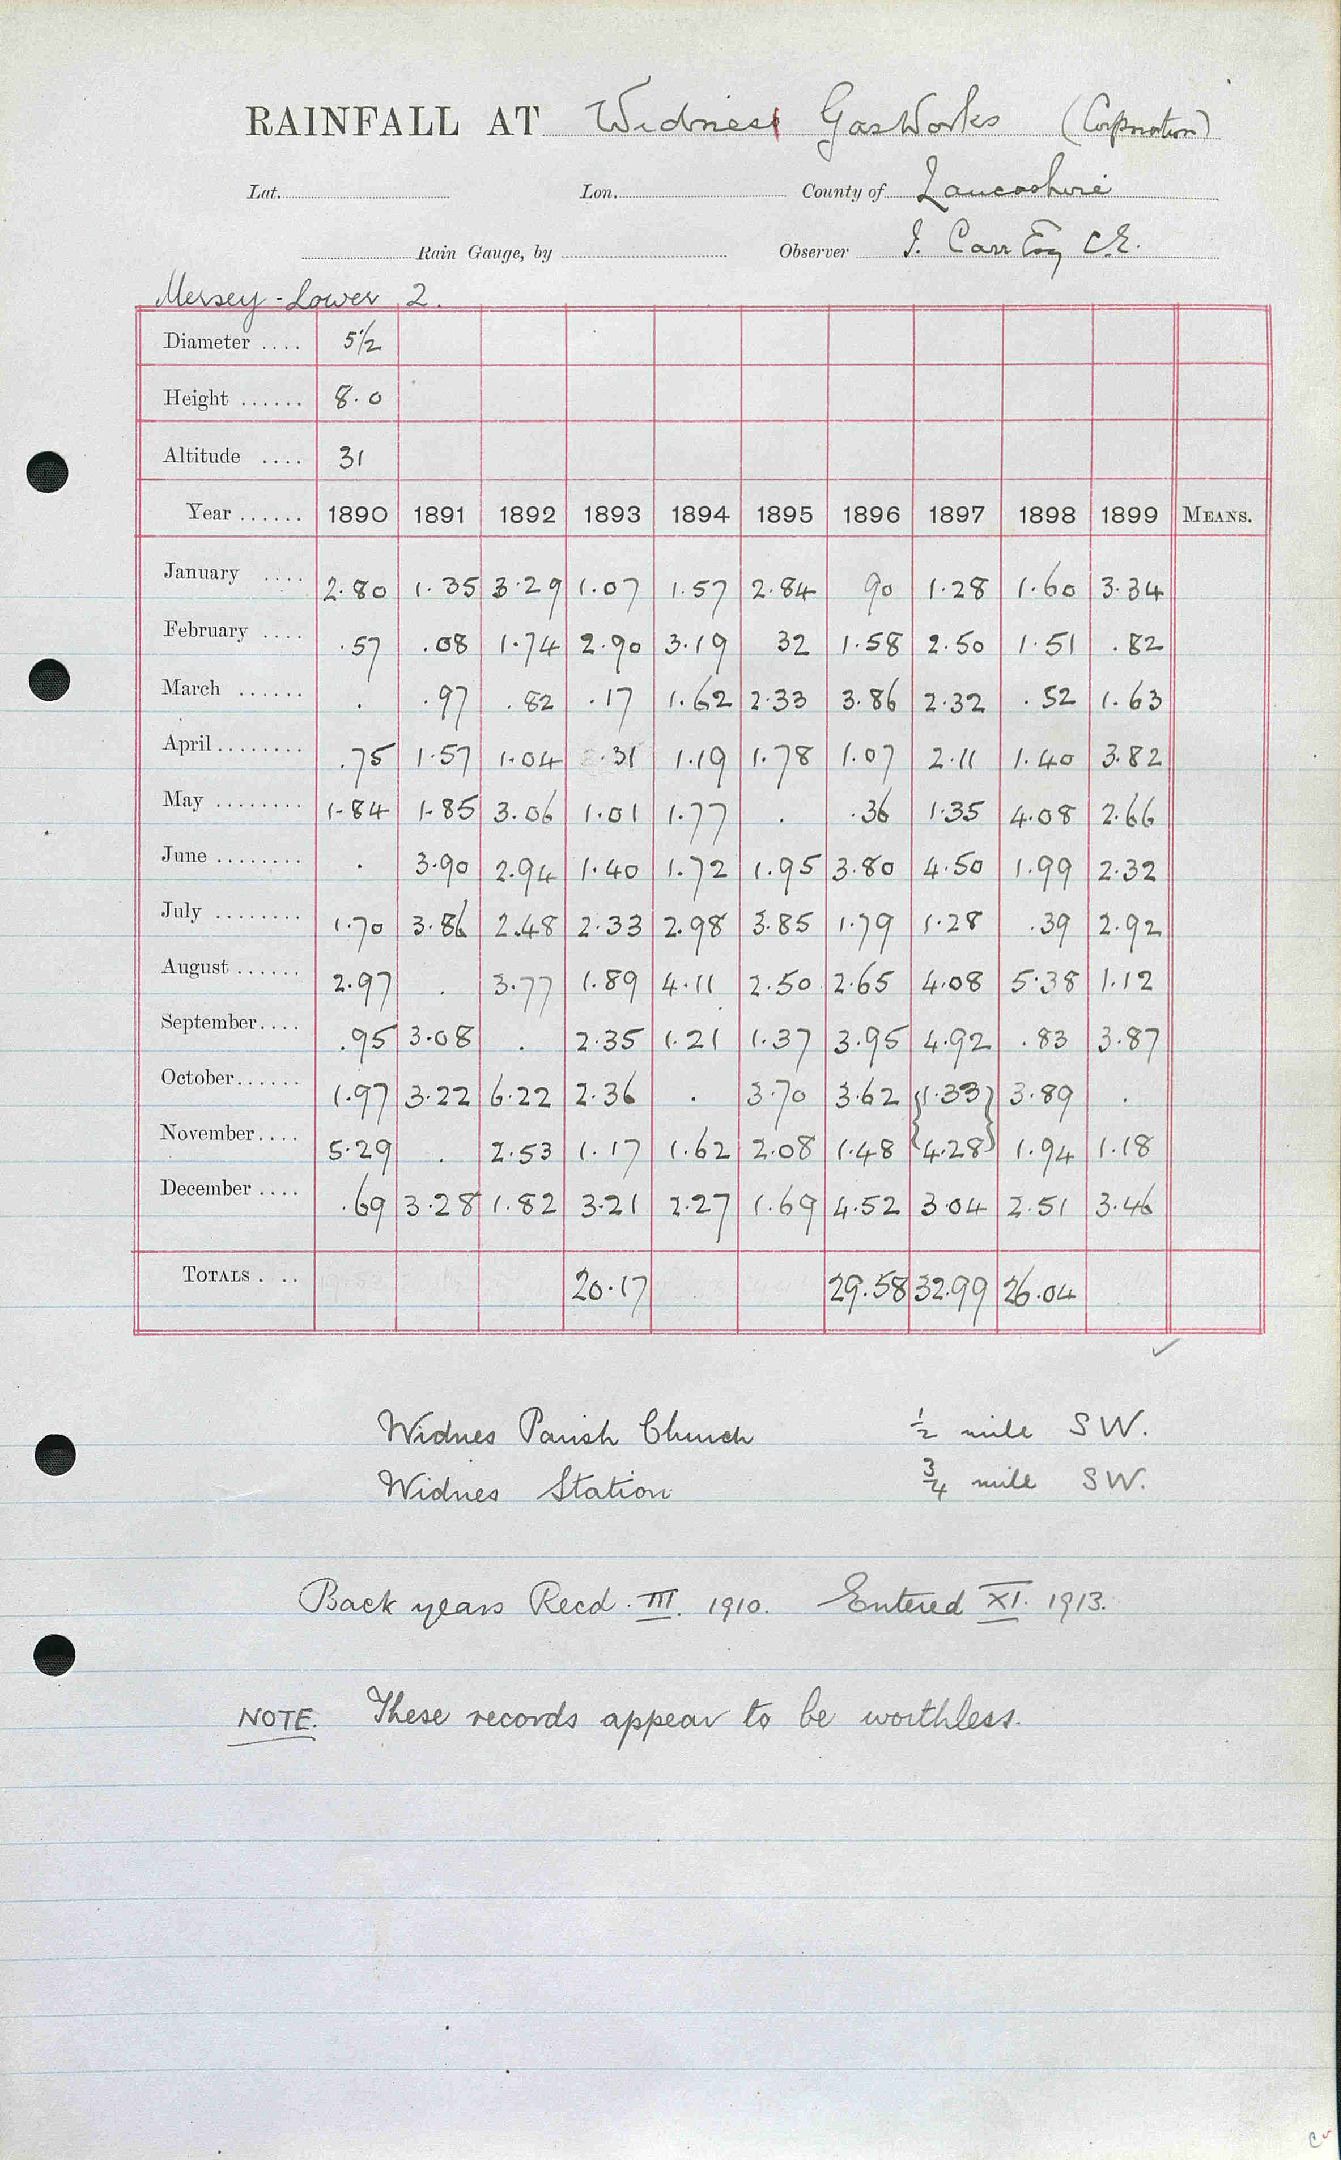 RAINFALL AT Widnes GasWorks (Corporation)
Lat. Lon. County of Lancashire
Rain Gauge, by Observer I. Carr Esq C.E.
Mersey - Lower 2.
Diameter .... 5 1/2
Height ...... 8.0
Altitude .... 31
Year ...... 1890 1891 1892 1893 1894 1895 1896 1897 1898 1899 MEANS.
January .... 2.80 1.35 3.29 1.07 1.57 2.84 90 1.28 1.60 3.34
February .... .57 .08 1.74 2.90 3.19 32 1.58 2.50 1.51 .82
March ...... . .97 .82 .17 1.62 2.33 3.86 2.32 .52 1.63
April ........ .75 1.57 1.04 .31 1.19 1.78 1.07 2.11 1.40 3.82
May ........ 1.84 1.85 3.06 1.01 1.77 . .36 1.35 4.08 2.66
June ........ . 3.90 2.94 1.40 1.72 1.95 3.80 4.50 1.99 2.32
July ........ 1.70 3.86 2.48 2.33 2.98 3.85 1.79 1.28 .39 2.92
August ...... 2.97 . 3.77 1.89 4.11 2.50 2.65 4.08 5.38 1.12
September.... .95 3.08 . 2.35 1.21 1.37 3.95 4.92 .83 3.87
October...... 1.97 3.22 6.22 2.36 . 3.70 3.62 {1.33} 3.89 .
November.... 5.29 . 2.53 1.17 1.62 2.08 1.48 {4.28} 1.94 1.18
December .... .69 3.28 1.82 3.21 2.27 1.69 4.52 3.04 2.51 3.46
TOTALS . .. 20.17 29.58 32.99 26.04
Widnes Parish Church ½ mile SW.
Widnes Station ¾ mile SW.
Back years Recd. III. 1910. Entered XI. 1913.
NOTE. These records appear to be worthless.